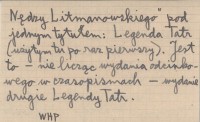 Nędzy Litmanowskiego" pod
jednym tytułem: Legenda Tatr
(użytym tu po raz pierwszy). Jest
to – nie licząc wydania odcinko-
wego w czasopismach – wydanie
drugie Legendy Tatr.
WHP